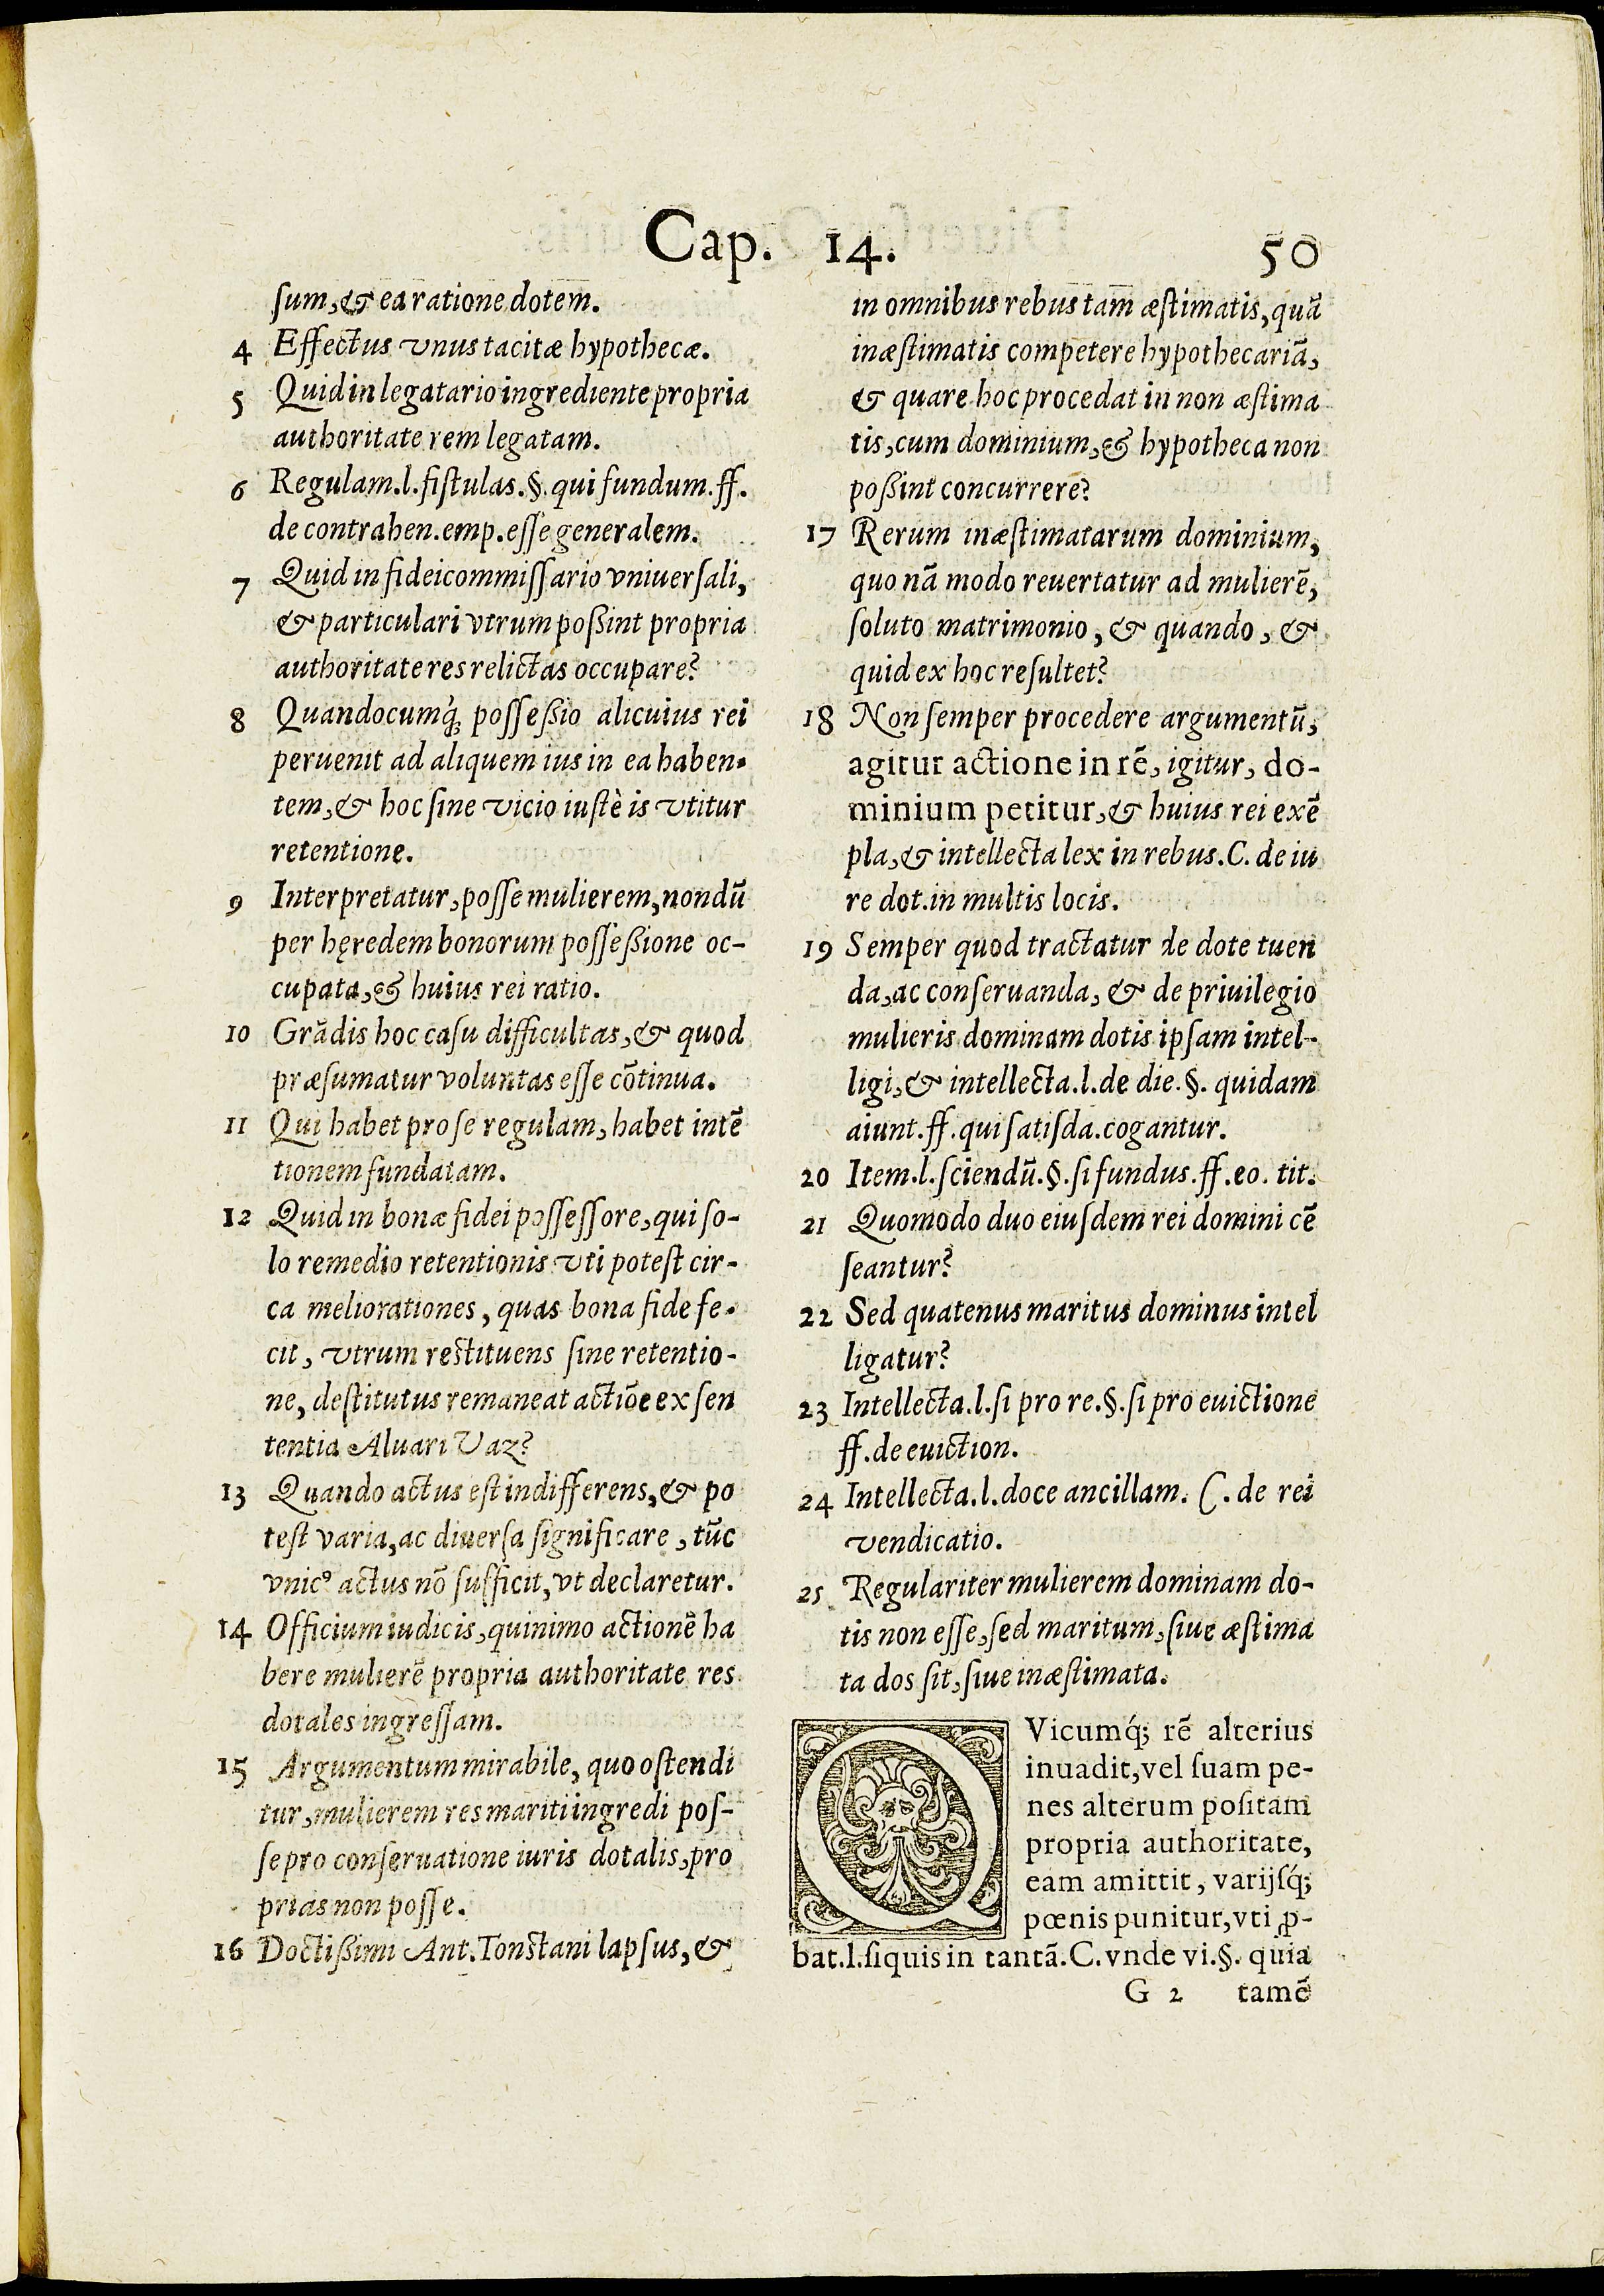 Cap. 14. 50
ſum,& ea ratione dotem.
4 Effectus vnus tacitæ hypothecæ.
5 Quid in legatario ingrediente propria
authoritate rem legatam.
6 Regulam.l.fiſtulas.§.qui fundum.ff.
de contrahen.emp.eſſe generalem.
7 Quid in fideicommiſſario vniuerſali,
& particulari vtrum poßint propria
authoritate res relictas occupare?
8 Quandocumq́; poſſeßio alicuius rei
peruenit ad aliquem ius in ea haben-
tem,& hoc ſine vicio iuſtè is vtitur
retentione.
9 Interpretatur,poſſe mulierem,nondũ
per hęredem bonorum poſſeßione oc-
cupata,& huius rei ratio.
10 Grãdis hoc caſu difficultas,& quod
præſumatur voluntas eſſe cõtinua.
11 Qui habet pro ſe regulam,habet intẽ
tionem fundatam.
12 Quid in bonæ fidei poſſeſſore,qui ſo-
lo remedio retentionis vti poteſt cir-
ca meliorationes, quas bona fide fe-
cit, vtrum reſtituens ſine retentio-
ne, deſtitutus remaneat actiõe ex ſen
tentia Aluari Vaz?
13 Quando actus eſt indifferens,& po
teſt varia,ac diuerſa ſignificare, tũc
vnicꝰ actus nõ ſufficit,vt declaretur.
14 Officium iudicis,quinimo actionẽ ha
bere mulierẽ propria authoritate res
dotales ingreſſam.
15 Argumentum mirabile, quo oſtendi
tur,mulierem res mariti ingredi poſ-
ſe pro conſeruatione iuris dotalis,pro
prias non poſſe.
16 Doctißimi Ant.Tonſtani lapſus,&
in omnibus rebus tam æſtimatis,quã
inæſtimatis competere hypothecariã,
& quare hoc procedat in non æſtima
tis,cum dominium,& hypotheca non
poßint concurrere?
17 Rerum inæſtimatarum dominium,
quo nã modo reuertatur ad mulierẽ,
ſoluto matrimonio, & quando, &
quid ex hoc reſultet?
18 Non ſemper procedere argumentũ,
agitur actione in rẽ, igitur, do-
minium petitur,& huius rei exẽ
pla,& intellecta lex in rebus.C. de iu
re dot.in multis locis.
19 Semper quod tractatur de dote tuen
da,ac conſeruanda, & de priuilegio
mulieris dominam dotis ipſam intel-
ligi,& intellecta.l.de die.§. quidam
aiunt.ff.qui ſatiſda.cogantur.
20 Item.l.ſciendũ.§.ſi fundus.ff.eo. tit.
21 Quomodo duo eiuſdem rei domini cẽ
ſeantur?
22 Sed quatenus maritus dominus intel
ligatur?
23 Intellecta.l.ſi pro re.§.ſi pro euictione
ff.de euiction.
24 Intellecta.l.doce ancillam. C. de rei
vendicatio.
25 Regulariter mulierem dominam do-
tis non eſſe,ſed maritum,ſiue æſtima
ta dos ſit,ſiue inæſtimata.
QVicumq́; rẽ alterius
inuadit,vel ſuam pe-
nes alterum poſitam
propria authoritate,
eam amittit, varijſq́;
pœnis punitur,vti ꝓ-
bat.l.ſiquis in tantã.C.vnde vi.§. quia
G 2 tamẽ